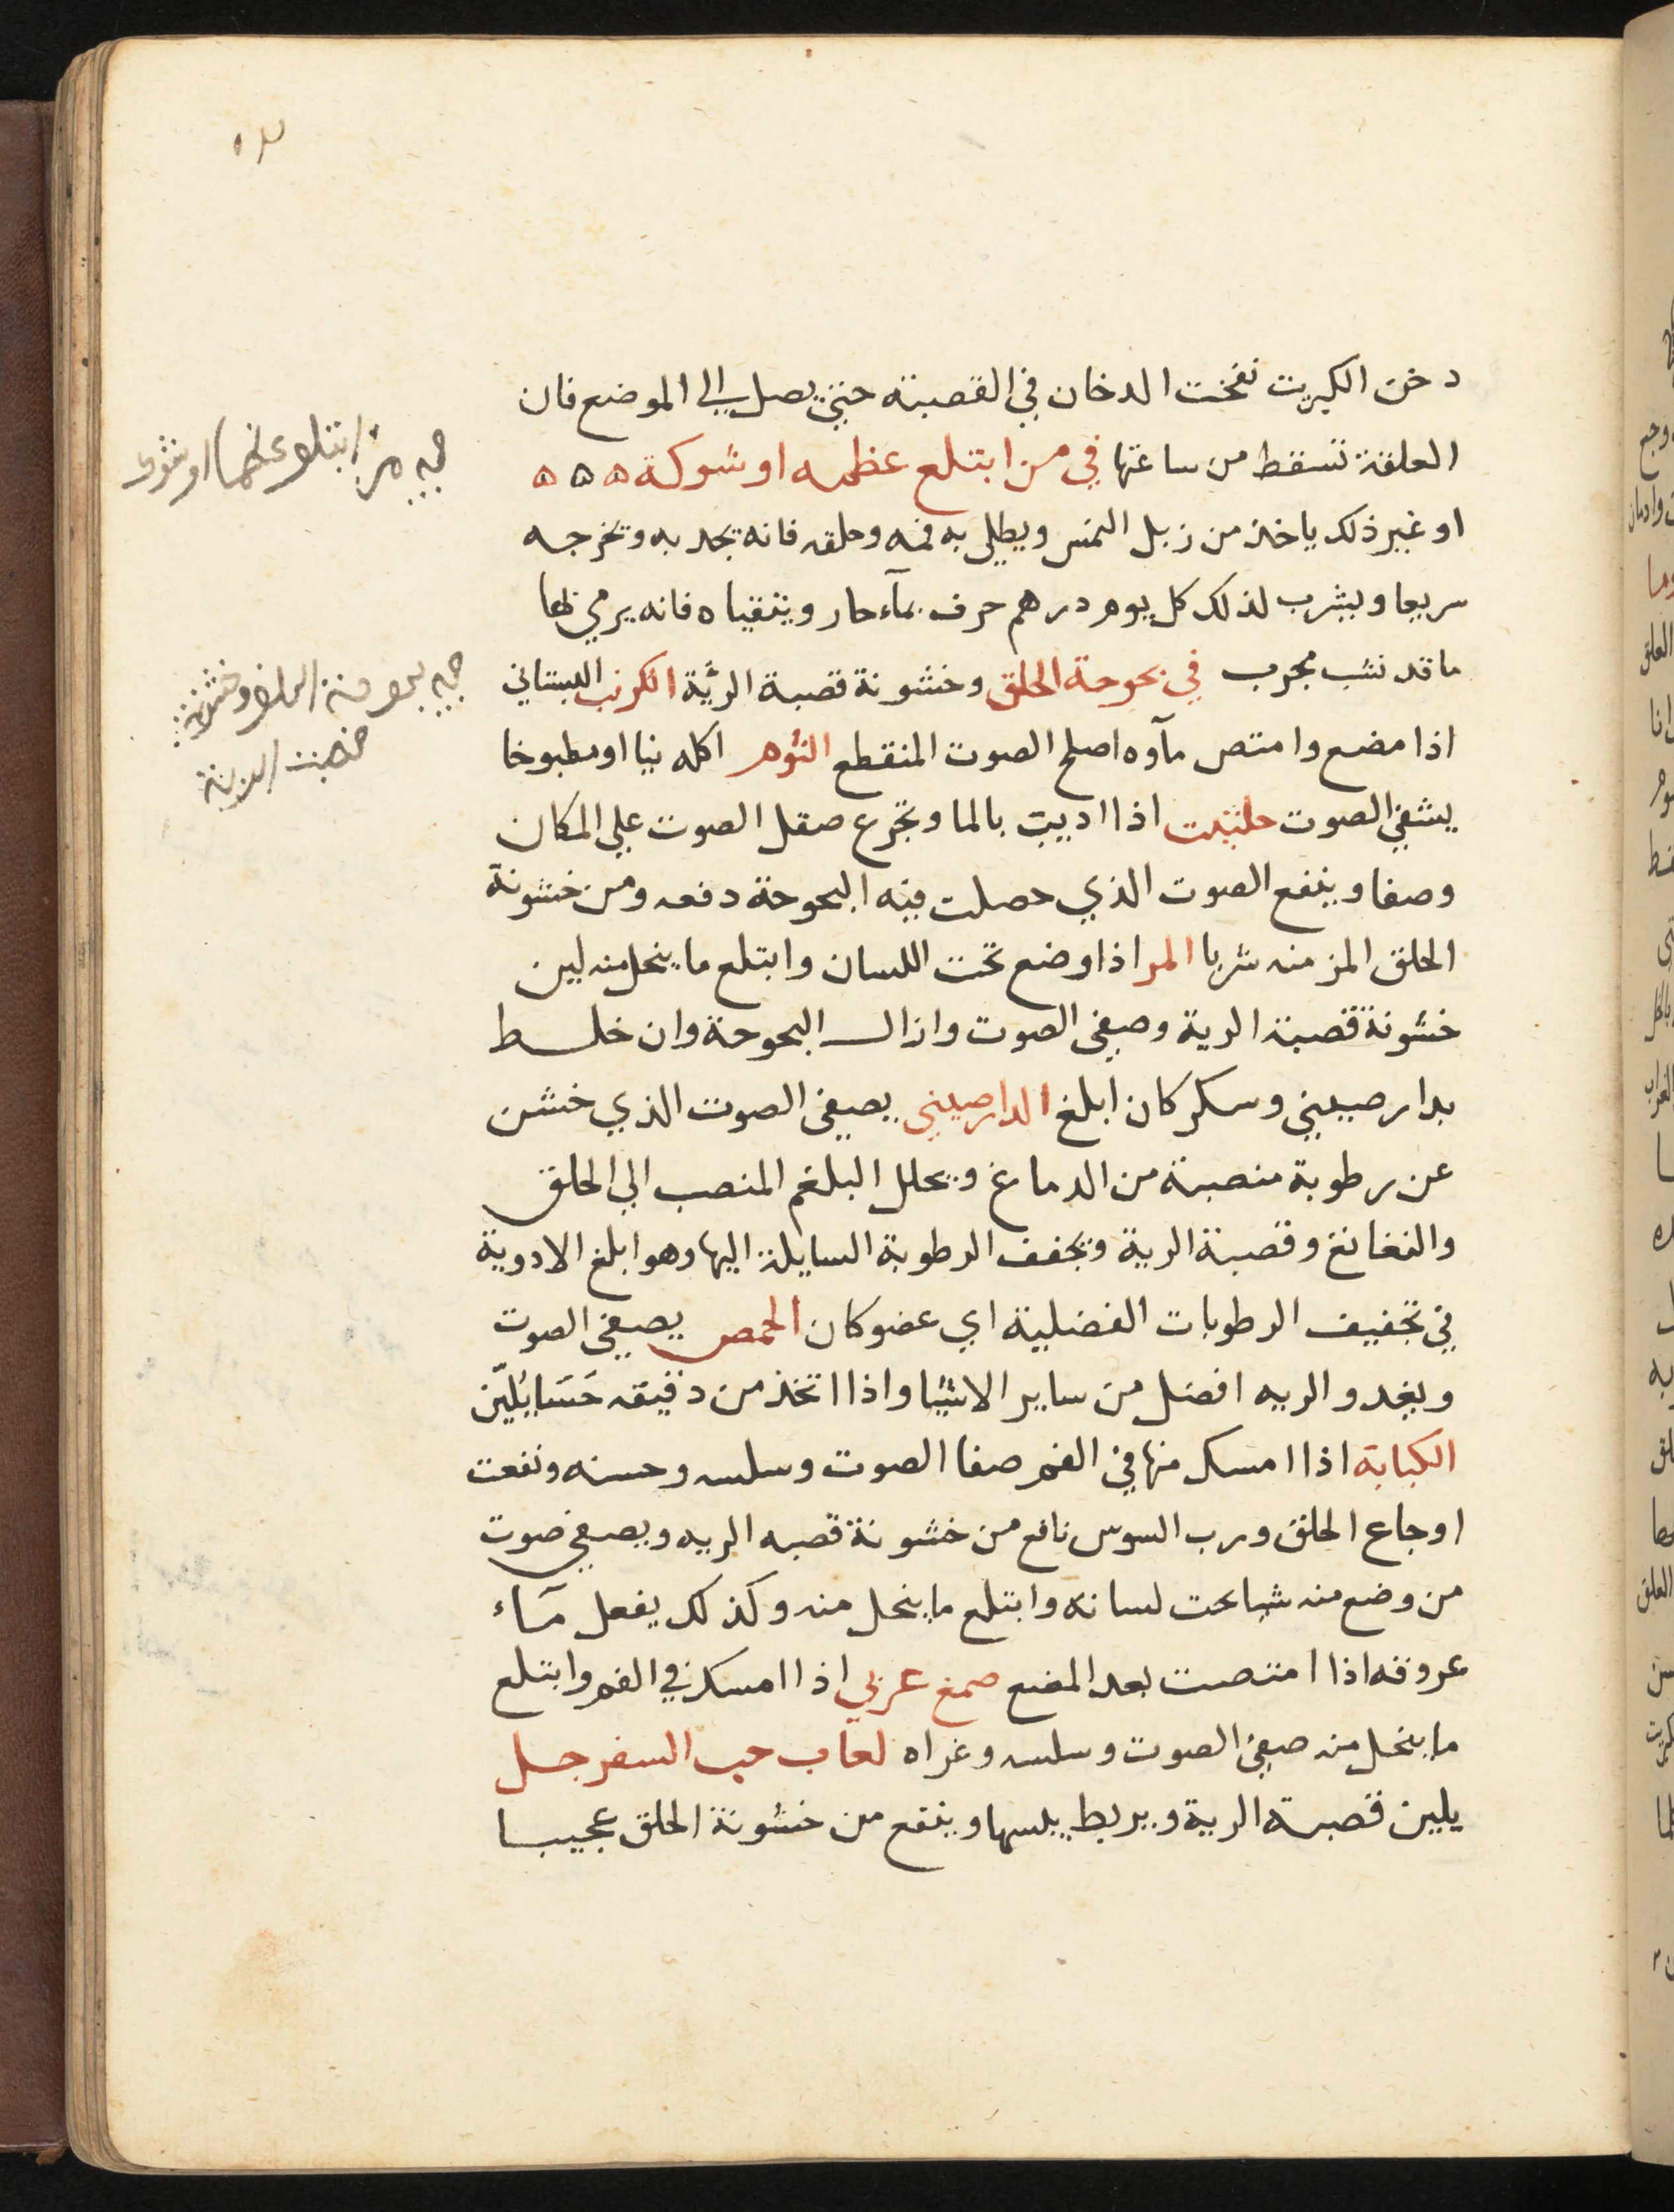 دخن الكبريت نفخت الدخان في القصبة حتى يصل الي الموضع فان
العلقة تسقط من ساعتها في من ابتلع عظمه او شوكة ه ه ه
او غير ذلك ياخذ من زبل النمس ويطلى به فمه وحلقه فانه يجد به وتخرجه
سريعا ويشرب لذلك كل يوم درهم حرف بمآء حار ويتقياه فانه يرمي بها
ما قد نشب مجرب في بحوحة الحلق وخشونة قصبة الرئة الكرنب البستاني
اذا مضع وامتص مآوه اصلح الصوت المنقطع الثوم اكله نيا او مطبوخا
يشفي الصوت حلتيت اذا اديب بالما وتجرع صقل الصوت علي المكان
وصفا وينفع الصوت الذي حصلت فيه البحوحة دفعه ومن خشونة
الحلق المزمنه شربا المر اذا وضع تحت اللسان وابتلع ما ينحل منه لين
خشونة قصبة الرية وصفى الصوت وازال البحوحة وان خلط
بدار صيني وسكر كان ابلغ الدارصيني يصفي الصوت الذي خشن
عن رطوبة منصبة من الدماغ ويحلل البلغم المنصب الي الحلق
والنغانغ وقصبة الرية ويجفف الرطوبة السايلة اليها وهو ابلغ الادوية
في تجفيف الرطوبات الفضلية اي عضو كان الحمص يصفي الصوت
ويغدو الريه افضل من ساير الاشيا واذا اتخذ من دقيقه حَسَا يُليّن
الكبابة اذا امسك منها في الفم صفا الصوت وسلسه وحسنه ونفعت
اوجاع الحلق ورب السوس نافع من خشونة قصبه الريه ويصفي صوت
من وضع منه شيا تحت لسانه وابتلع ما ينحل منه وكذلك يفعل مآء
عروقه اذا امتصت بعد المضع صمغ عربي اذا امسك في الفم وابتلع
ما ينحل منه صفي الصوت وسلسه وغراه لعاب حب السفرجل
يلين قصبة الرية ويربط يبسها وينفع من خشونة الحلق عجيبا